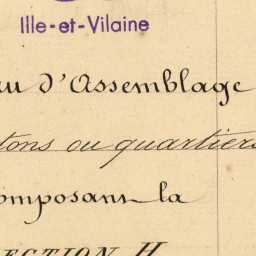 Ille-et-Vilaine
au d'Assemblage
tons ou quartiers
composant la
SECTION H